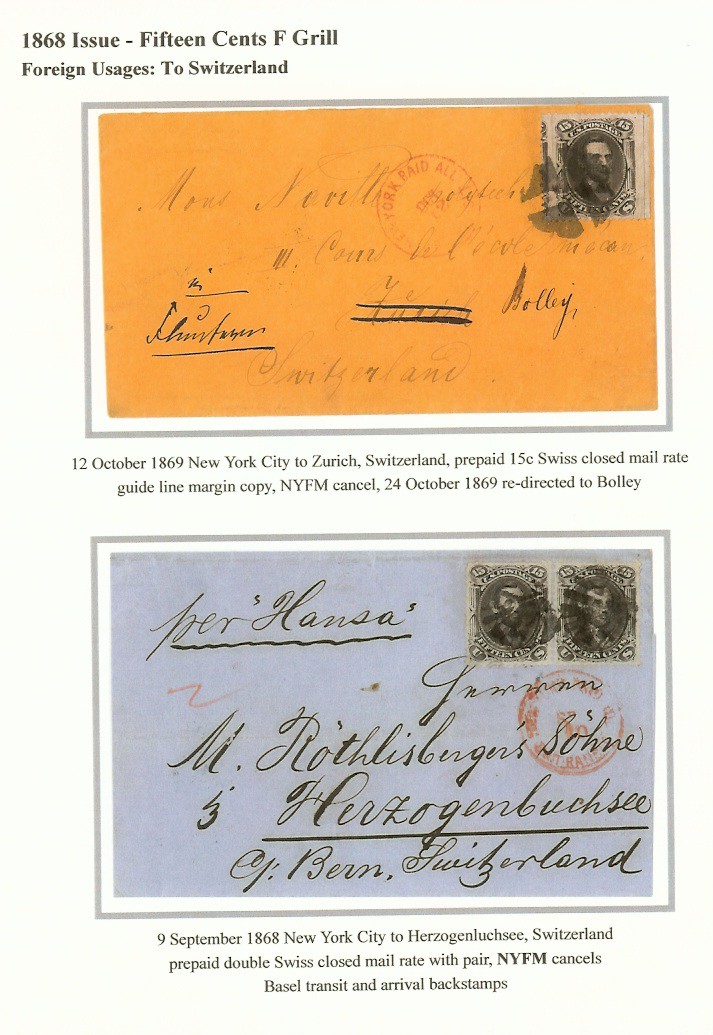 1868 Issue - Fifteen Cents F Grill
Foreign Usages: To Switzerland
15 U.S. POSTAGE 15
FIFTEEN CENTS
U S
YORK PAID ALL
Mons Naville
III. Cours de l'école
in
Fluntern
Zürich
Bolley,
Switzerland
12 October 1869 New York City to Zurich, Switzerland, prepaid 15c Swiss closed mail rate
guide line margin copy, NYFM cancel, 24 October 1869 re-directed to Bolley
15 U.S. POSTAGE 15 15 U.S. POSTAGE 15
FIFTEEN CENTS FIFTEEN CENTS
U S U S
per "Hansa"
Herren
M. Röthlisberger's Söhne
Herzogenbuchsee
Ct. Bern, Switzerland
9 September 1868 New York City to Herzogenluchsee, Switzerland
prepaid double Swiss closed mail rate with pair, NYFM cancels
Basel transit and arrival backstamps